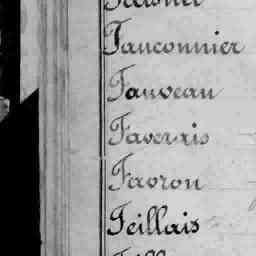 Fauconnier
Fauveau
Faverais
Favron
Feillais